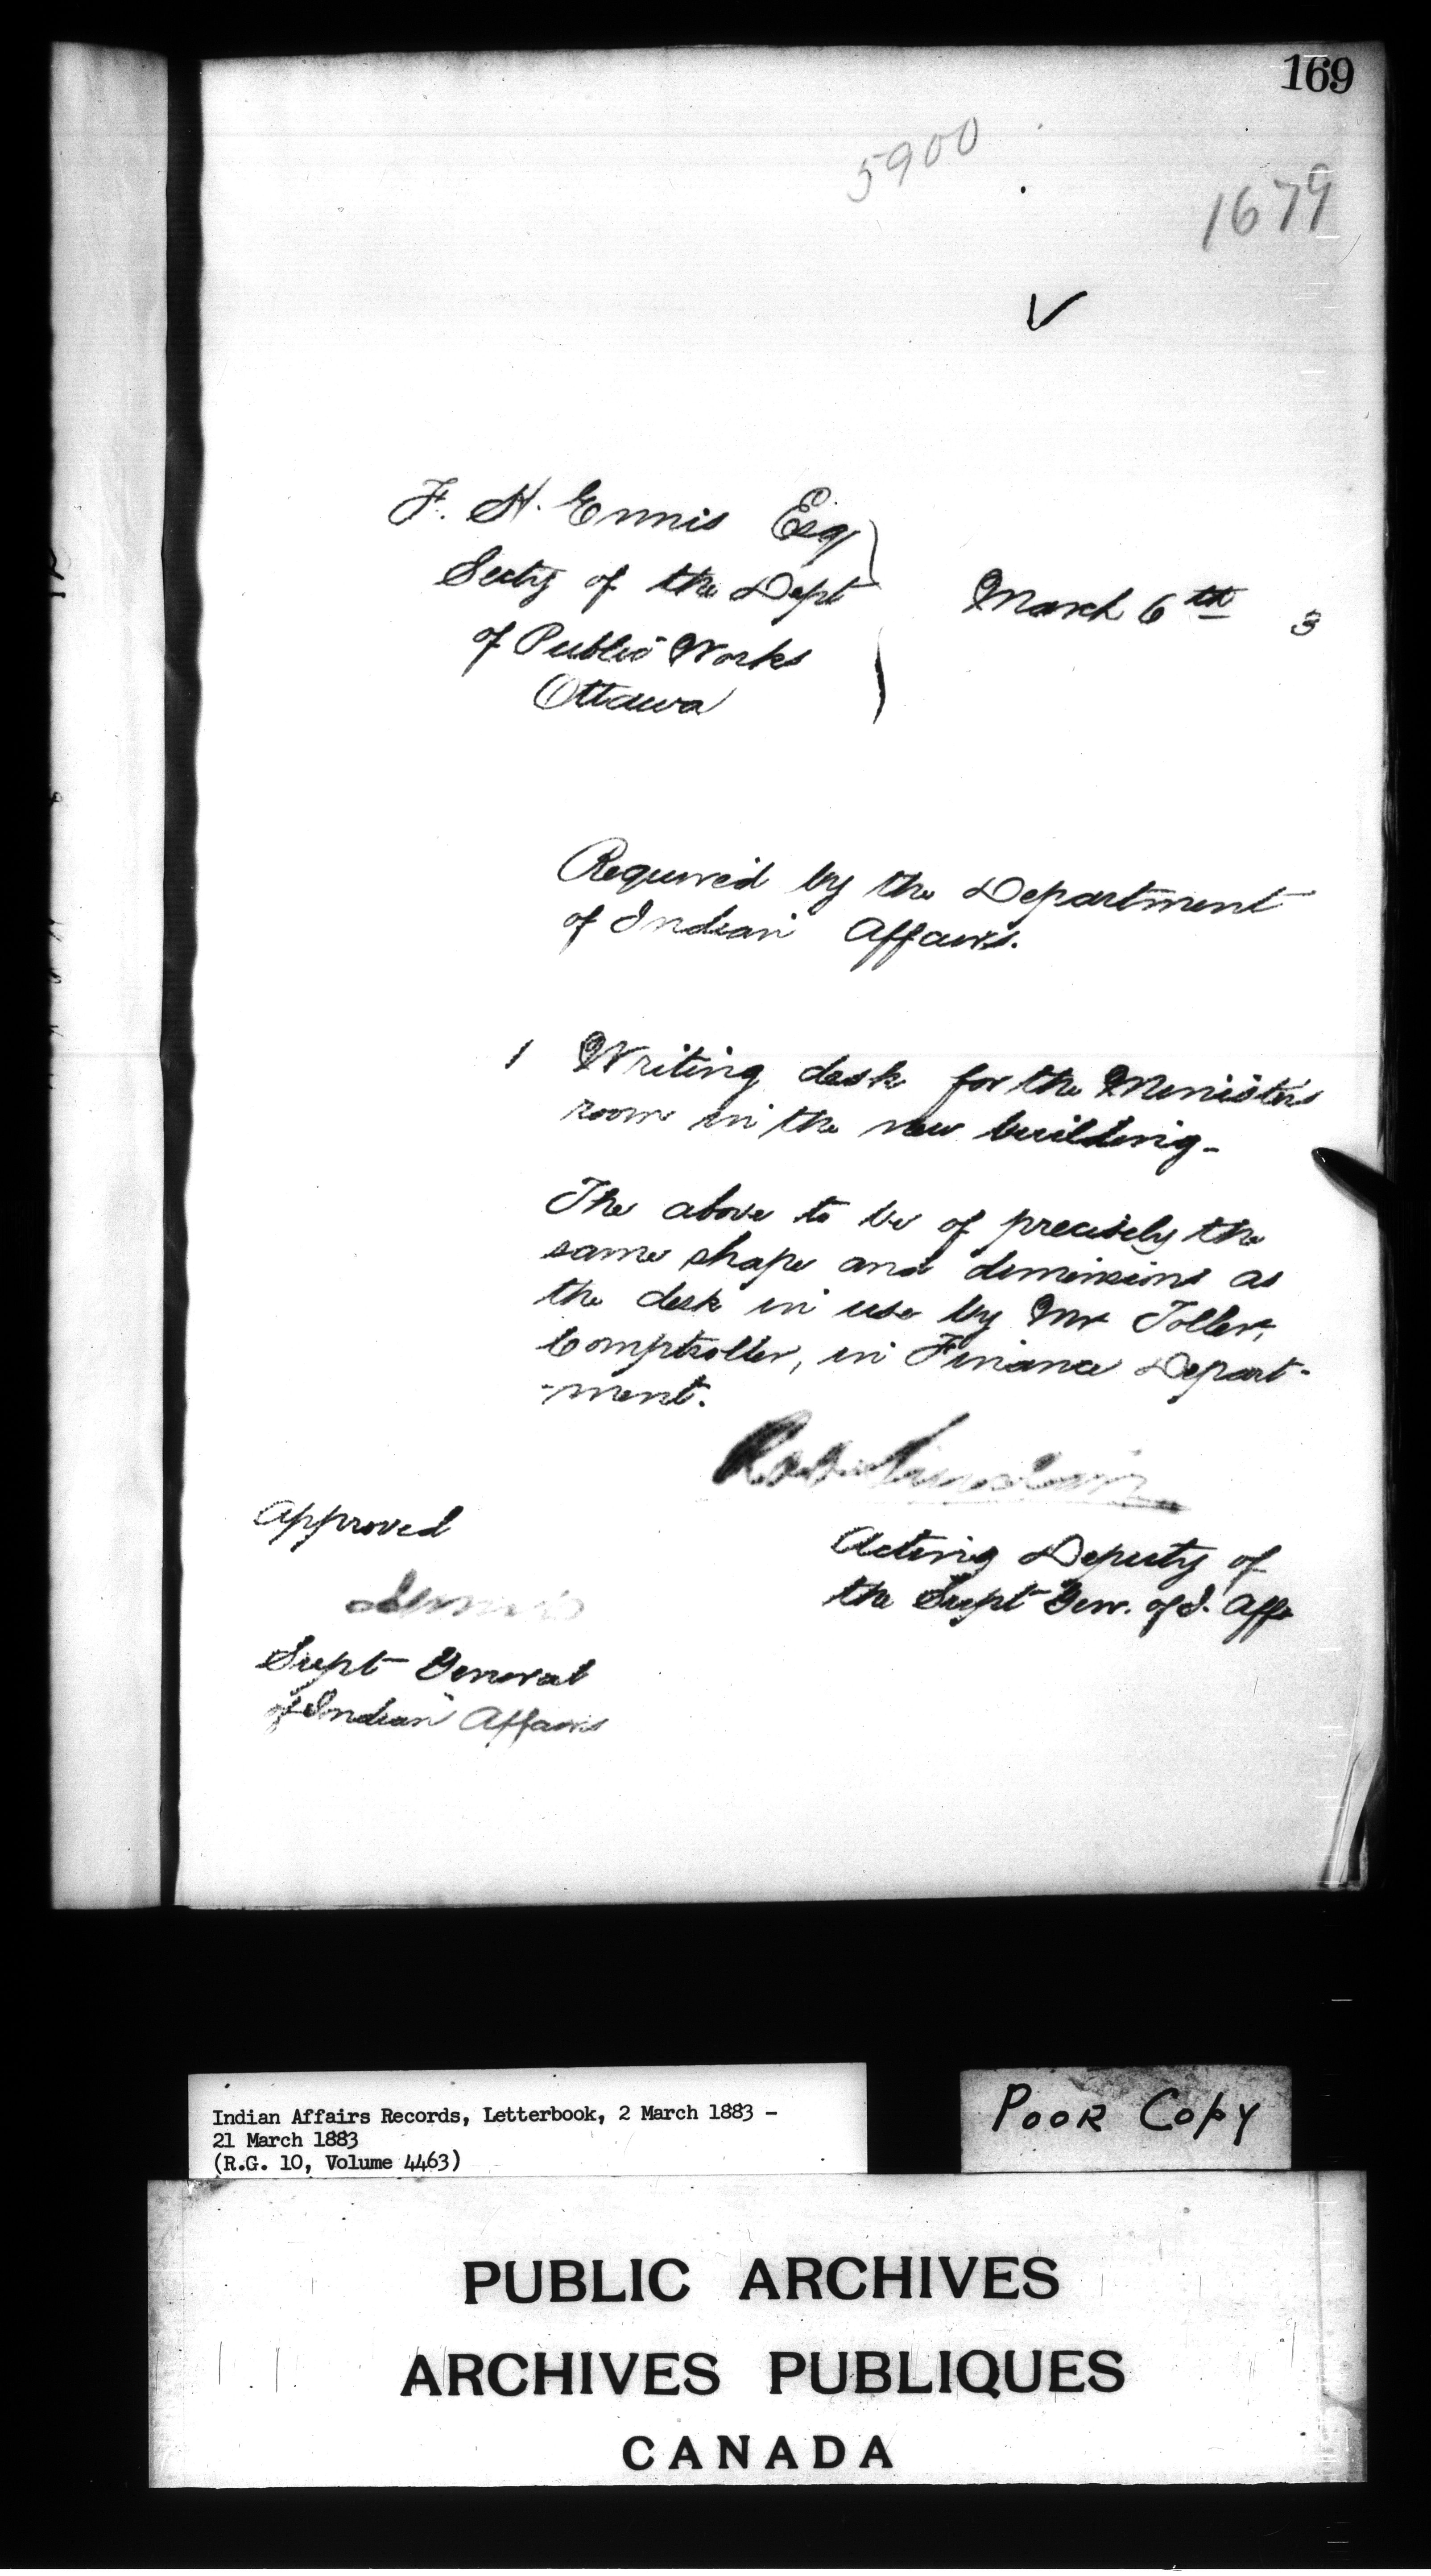 169
5900
1679
F. H. Ennis Esq
Secty of the Dept
of Public Works
Ottawa
March 6th 3
Required by the Department
of Indian Affairs.
1 Writing desk for the Minister's
room in the new building -
The above to be of precisely the
same shape and dimensions as
the desk in use by Mr Toller,
Comptroller, in Finance Depart-
-ment.
Approved
Acting Deputy of
the Supt Gen. of I. Affs
Supt General
of Indian Affairs
Indian Affairs Records, Letterbook, 2 March 1883 -
21 March 1883
(R.G. 10, Volume 4463)
POOR COPY
PUBLIC ARCHIVES
ARCHIVES PUBLIQUES
CANADA